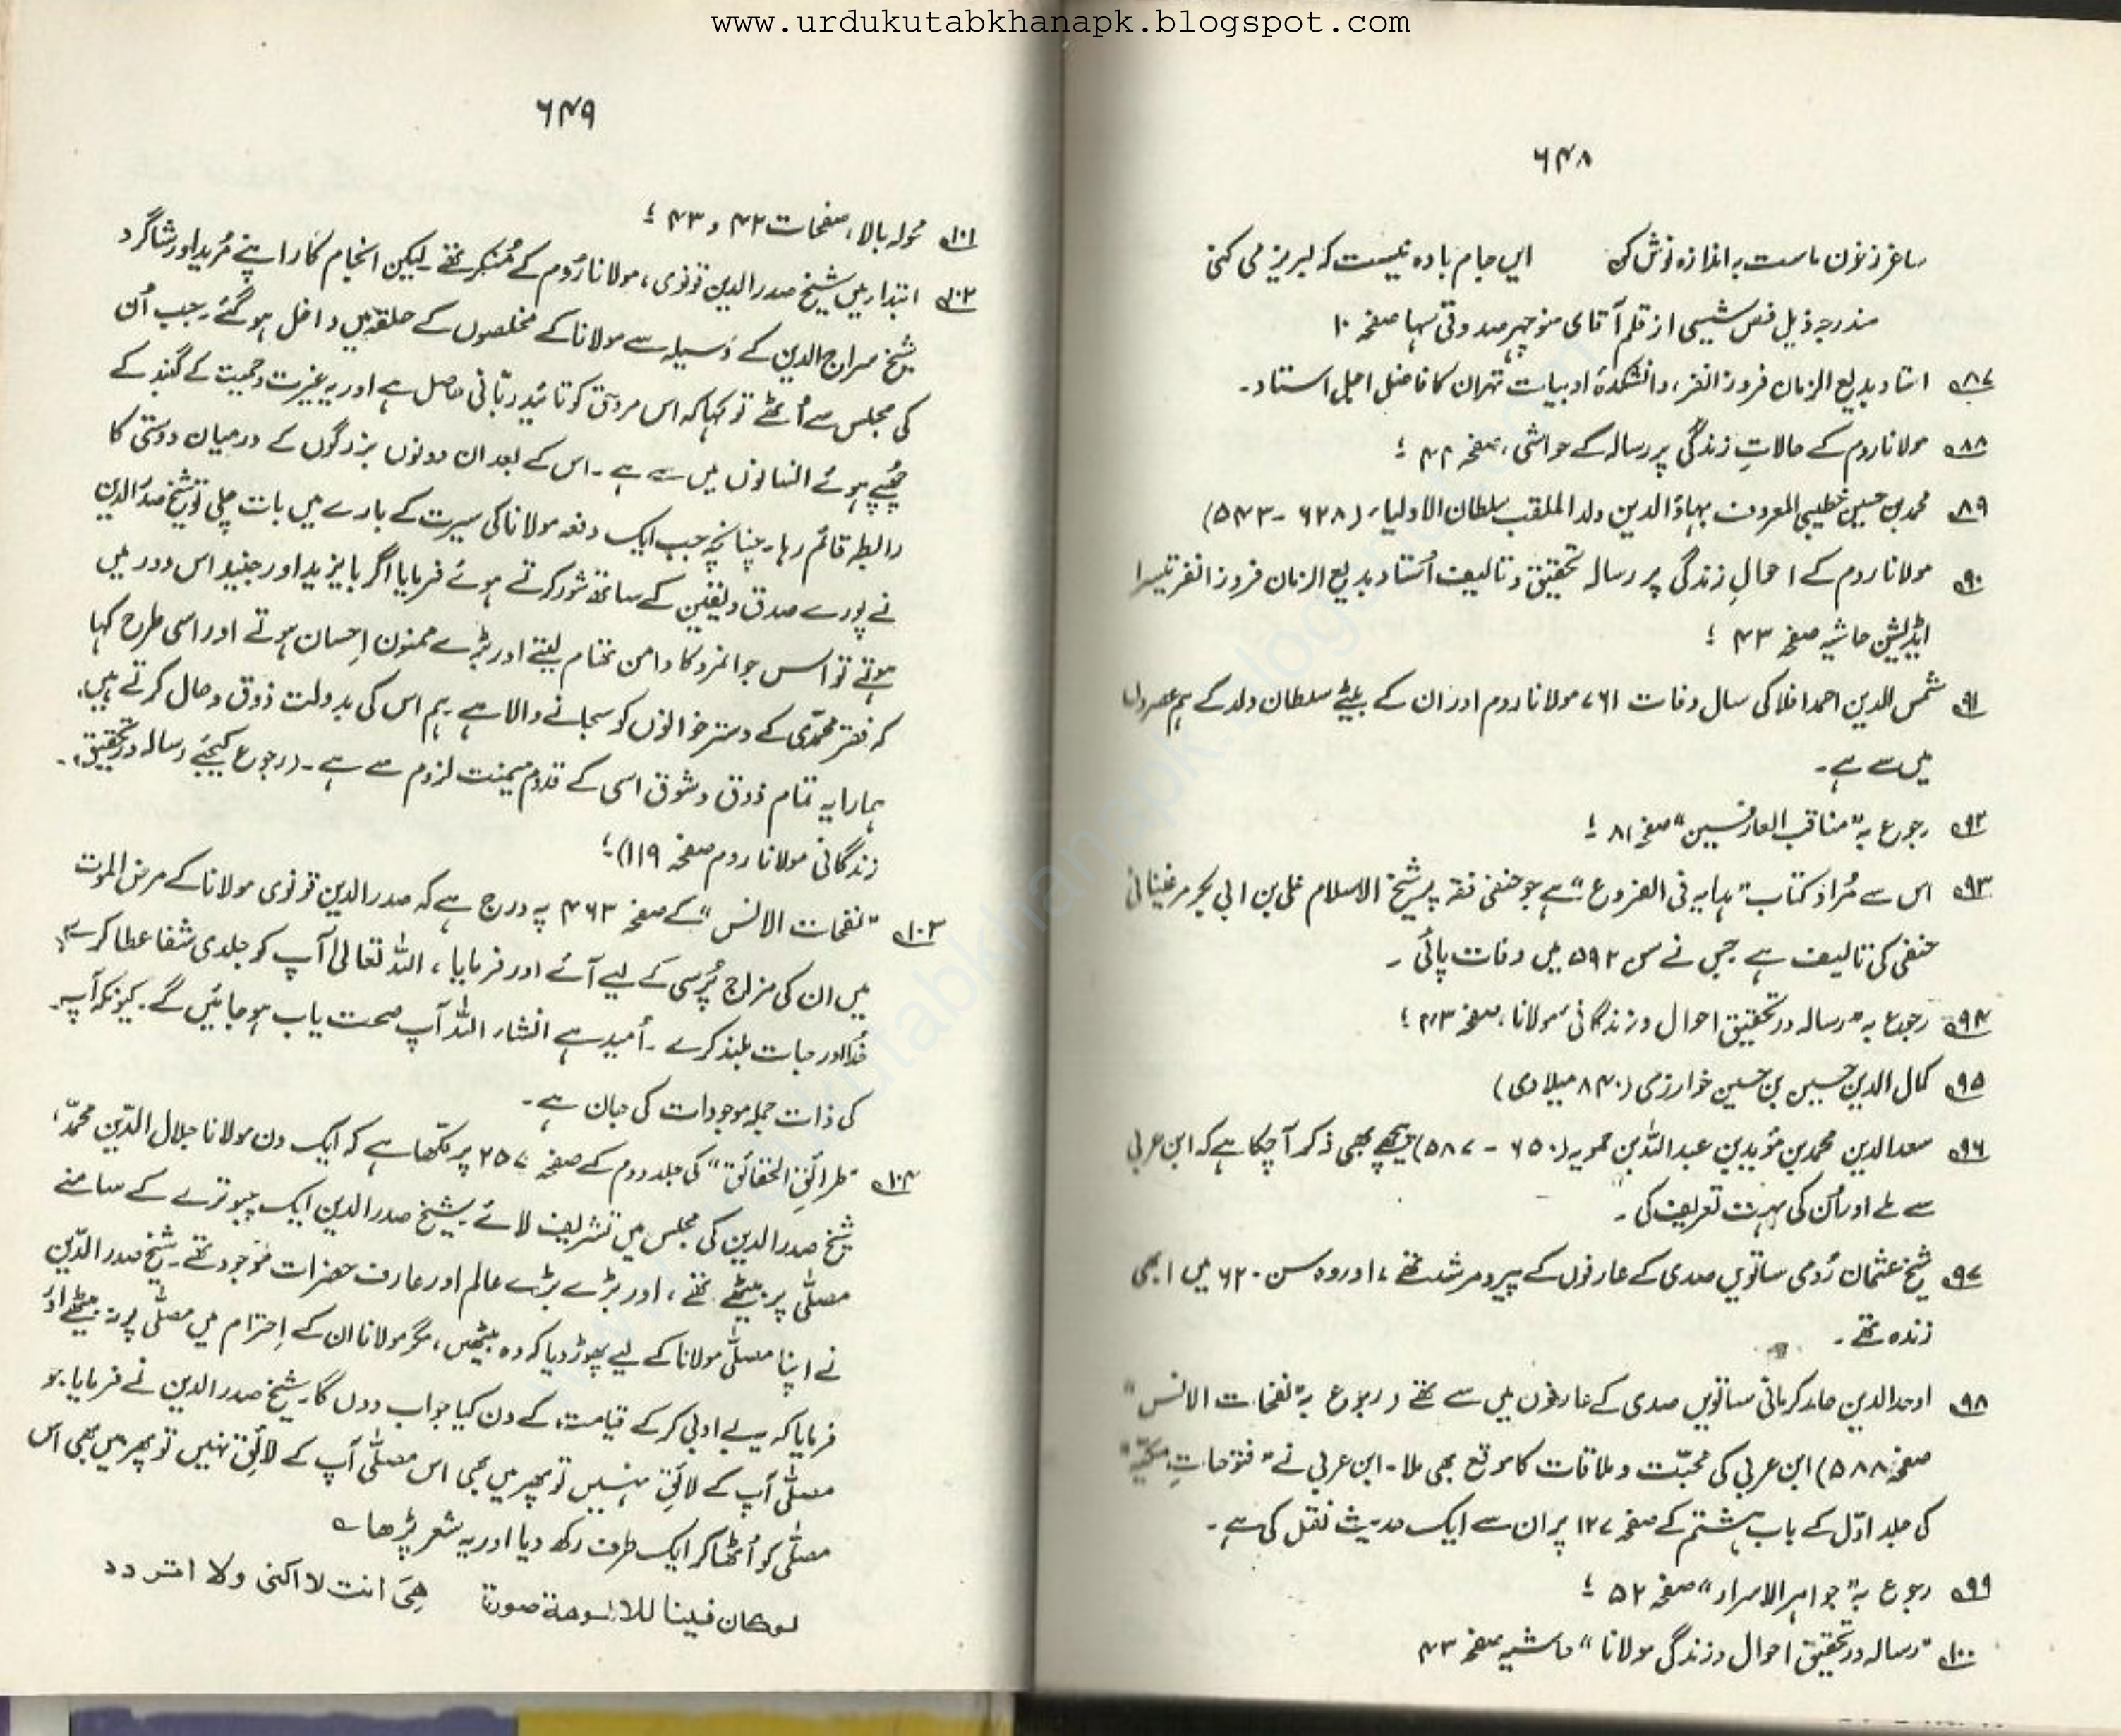 www.urdukutabkhanapk.blogspot.com
۶۴۸
ساغر ز خون ماست بہ اندازہ نوش کن ایں جام بادہ نیست کہ لبریز می کنی
مندرجہ ذیل فص شیثی از قلم آقای منوچہر صدوقی سہا صفحہ ۱۰
۸۷ استاد بدیع الزمان فروزانفر، دانشکدۂ ادبیات تہران کا فاضل اجل استاد۔
۸۸ مولانا روم کے حالاتِ زندگی پر رسالہ کے حواشی، صفحہ ۴۴ ؛
۸۹ محمد بن حسین خطیبی المعروف بہاؤ الدین ولد الملقب سلطان الاولیاء (۶۲۸ - ۵۴۳)
۹۰ مولانا روم کے احوالِ زندگی پر رسالہ تحقیق و تالیف اُستاد بدیع الزمان فروزانفر تیسرا
ایڈیشن حاشیہ صفحہ ۴۳ ؛
۹۱ شمس الدین احمد افلاکی سال وفات ۷۶۱ مولانا روم اور ان کے بیٹے سلطان ولد کے ہم عصروں
میں سے ہے۔
۹۲ رجوع بہ "مناقب العارفین" صفحہ ۸۱ ؛
۹۳ اس سے مُراد کتاب "ہدایہ فی الفروع" ہے جو حنفی فقہ پر شیخ الاسلام علی بن ابی بکر مرغینانی
حنفی کی تالیف ہے جس نے سن ۵۹۲ میں وفات پائی۔
۹۴ رجوع بہ "رسالہ در تحقیق احوال و زندگانی" مولانا، صفحہ ۴۳ ؛
۹۵ کمال الدین حسین بن حسین خوارزمی (۸۴۰ میلادی)
۹۶ سعد الدین محمد بن مؤید بن عبداللہ بن حمویہ (۶۵۰ - ۵۸۷) پیچھے بھی ذکر آ چکا ہے کہ ابن عربی
سے ملے اور اُن کی بہت تعریف کی۔
۹۷ شیخ عثمان رُومی ساتویں صدی کے عارفوں کے پیر و مرشد تھے، اور وہ سن ۶۲۰ میں ابھی
زندہ تھے۔
۹۸ اوحد الدین حامد کرمانی ساتویں صدی کے عارفوں میں سے تھے (رجوع بہ "نفحات الانس"
صفحہ ۵۸۸) ابن عربی کی محبّت و ملاقات کا موقع بھی ملا۔ ابن عربی نے "فتوحاتِ مکیّہ"
کی جلد اوّل کے باب ہشتم کے صفحہ ۱۲۷ پر ان سے ایک حدیث نقل کی ہے۔
۹۹ رجوع بہ "جواہر الاسرار" صفحہ ۵۲ ؛
۱۰۰ "رسالہ در تحقیق احوال و زندگی مولانا" حاشیہ صفحہ ۴۳
۶۴۹
۱۰۱ محولہ بالا، صفحات ۴۲ و ۴۳ ؛
۱۰۲ ابتدا میں شیخ صدر الدین قونوی، مولانا رُوم کے مُنکر تھے۔ لیکن انجام کار اپنے مُرید اور شاگرد
شیخ سراج الدین کے وَسیلہ سے مولانا کے مخلصوں کے حلقہ میں داخل ہو گئے۔ جب اُن
کی مجلس سے اُٹھے تو کہا کہ اس مردِ حق کو تائیدِ ربّانی حاصل ہے اور یہ غیرت و حمیت کے گنبد کے
چُھپے ہوئے انسانوں میں سے ہے۔ اس کے بعد ان دونوں بزرگوں کے درمیان دوستی کا
رابطہ قائم رہا۔ چنانچہ جب ایک دفعہ مولانا کی سیرت کے بارے میں بات چلی تو شیخ صدر الدین
نے پُورے صدق و یقین کے ساتھ شور کرتے ہوئے فرمایا اگر بایزید اور جنید اس دور میں
ہوتے تو اس جوانمرد کا دامن تھام لیتے اور بڑے ممنونِ احسان ہوتے اور اسی طرح کہا
کہ فقر محمّدی کے دسترخوانوں کو سجانے والا ہے ہم اس کی بدولت ذوق و حال کرتے ہیں،
ہمارا یہ تمام ذوق و شوق اسی کے قدوم میمنت لزوم سے ہے۔ (رجوع کیجیے رسالہ در تحقیق
زندگانی مولانا روم صفحہ ۱۱۹) ؛
۱۰۳ "نفحات الانس" کے صفحہ ۴۶۳ پہ درج ہے کہ صدر الدین قونوی مولانا کے مرض الموت
میں ان کی مزاج پُرسی کے لیے آئے اور فرمایا، اللہ تعالیٰ آپ کو جلدی شفا عطا کرے،
خُدا درجات بلند کرے۔ اُمید ہے انشاء اللہ آپ صحت یاب ہو جائیں گے۔ کیونکہ آپ
کی ذات جملہ موجودات کی جان ہے۔
۱۰۴ "طرائق الحقائق" کی جلد دوم کے صفحہ ۲۵۷ پر لکھا ہے کہ ایک دن مولانا جلال الدّین محمّد،
شیخ صدر الدین کی مجلس میں تشریف لائے۔ شیخ صدر الدین ایک چبوترے کے سامنے
مصلّٰی پر بیٹھے تھے، اور بڑے بڑے عالم اور عارف حضرات موجود تھے۔ شیخ صدر الدّین
نے اپنا مصلّٰی مولانا کے لیے چھوڑ دیا کہ وہ بیٹھیں، مگر مولانا ان کے احترام میں مصلّٰی پر نہ بیٹھے اور
فرمایا کہ یہ بے ادبی کر کے قیامت کے دن کیا جواب دوں گا۔ شیخ صدر الدین نے فرمایا۔ جو
مصلّٰی آپ کے لائق نہیں تو پھر میں بھی اس مصلّٰی آپ کے لائق نہیں تو پھر میں بھی اس
مصلّٰی کو اُٹھا کر ایک طرف رکھ دیا اور یہ شعر پڑھا ے
لوکان فینا للالوهة صورة هِیَ انت لا اکنی ولا اتردد